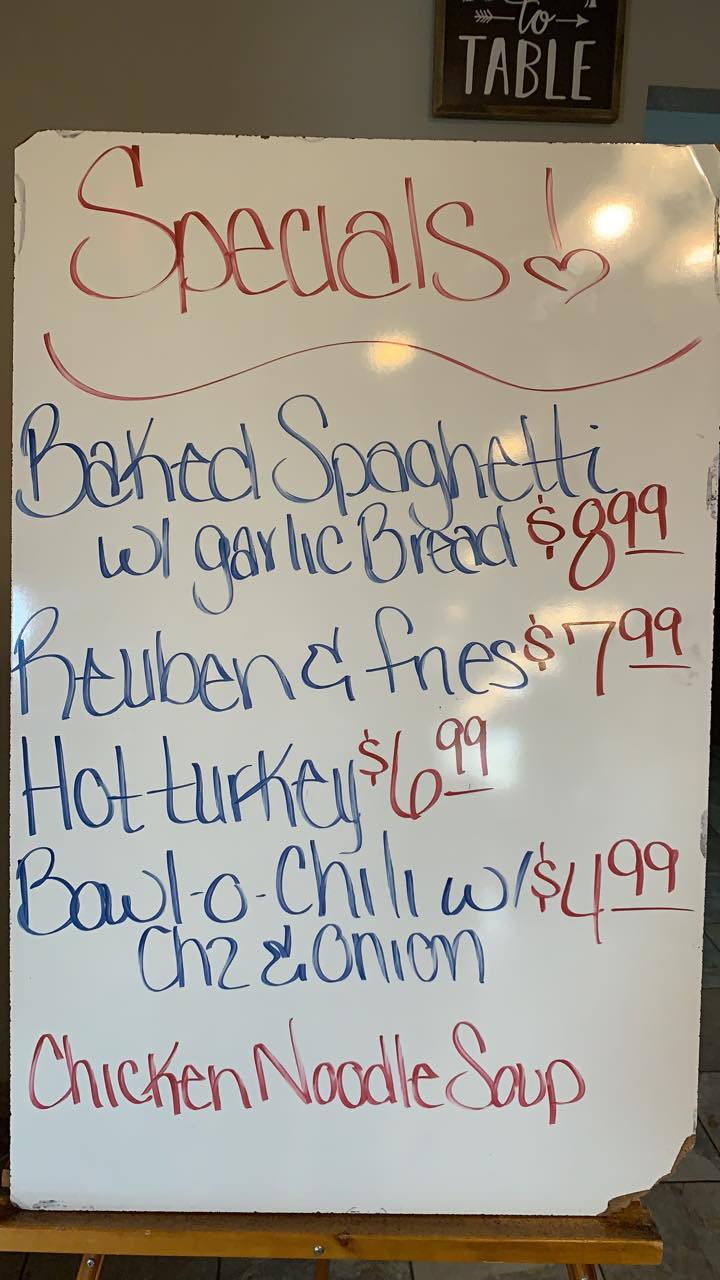 to
TABLE
Specials!
Baked Spaghetti
w/ garlic Bread $8.99
Reuben & fries $7.99
Hot turkey $6.99
Bowl-o-Chili w/ $4.99
Chz & Onion
Chicken Noodle Soup